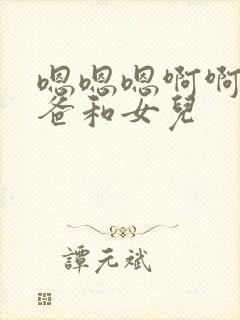 嗯嗯嗯啊啊
爸和女兒
譚元斌